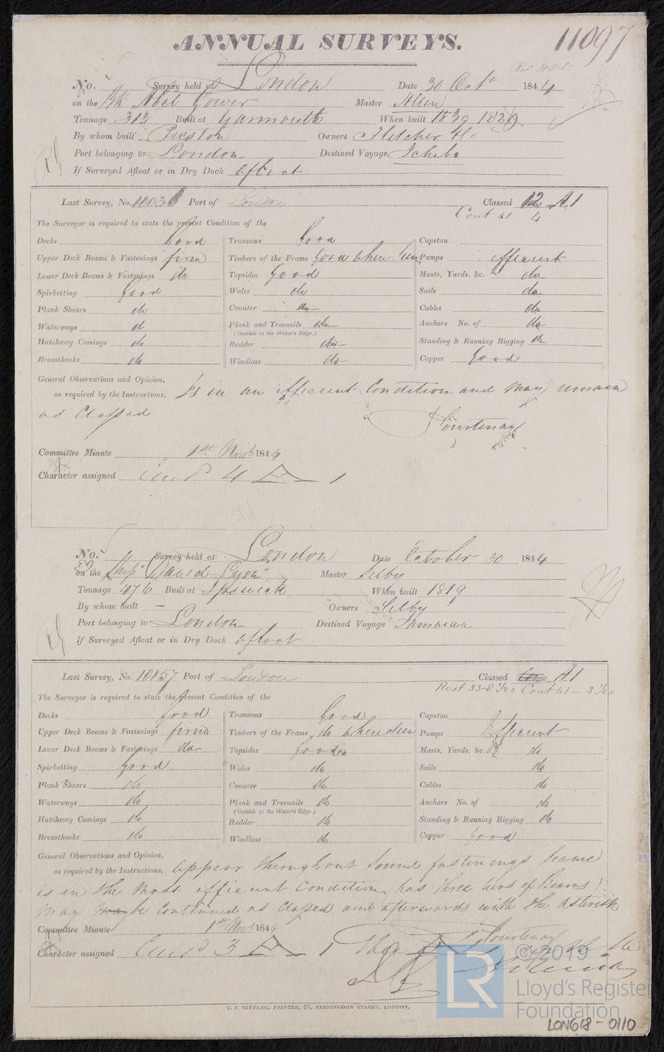 ANNUAL SURVEYS. 11097
No. Survey held at London Date 30 Octr 1844
on the Bk Abel Gower Master
Tonnage 312 Built at Yarmouth When built 1829
By whom built Preston Owners Fletcher & Co
Port belonging to London Destined Voyage Ichebo
If Surveyed Afloat or in Dry Dock Afloat
Last Survey, No. Port of London Classed 12 A1
Cont 41 4
The Surveyor is required to state the present Condition of the
Decks Good Transoms Good Capstan
Upper Deck Beams & Fastenings firm Timbers of the Frame Good where seen Pumps efficient
Lower Deck Beams & Fastenings do Topsides Good Masts, Yards, &c. do
Spirketting Good Wales do Sails do
Plank Shears do Counter do Cables do
Waterways do Plank and Treenails do Anchors No. of do
(Outside to the Water's Edge.)
Hatchway Comings do Rudder do Standing & Running Rigging do
Breasthooks do Windlass do Copper Good
General Observations and Opinion, Is in an efficient Condition and may remain
as required by the Instructions,
as Classed
Courtenay
Committee Minute 1st Novr 1844
Character assigned Cont 4 A 1
No. Survey held at London Date October 30 1844
on the Ship "David Lyon" Master Selby
Tonnage 476 Built at Ipswich When built 1819
By whom built - Owners Selby
Port belonging to London Destined Voyage Jamaica
If Surveyed Afloat or in Dry Dock Afloat
Last Survey, No. 10157 Port of London Classed A1
Rest 33-8 Yrs Cont 41 - 3 Yrs
The Surveyor is required to state the present Condition of the
Decks Good Transoms Good Capstan
Upper Deck Beams & Fastenings firm Timbers of the Frame do where seen Pumps Efficient
Lower Deck Beams & Fastenings do Topsides Good Masts, Yards, &c. do
Spirketting Good Wales do Sails do
Plank Shears do Counter do Cables do
Waterways do Plank and Treenails do Anchors No. of do
(Outside to the Water's Edge.)
Hatchway Comings do Rudder do Standing & Running Rigging do
Breasthooks do Windlass do Copper Good
General Observations and Opinion,
as required by the Instructions, Appear throughout sound fastenings secure
is in the most efficient Condition, has three tiers of Beams!
May be Continued as Classed and afterwards with the asterisk
Courtenay
Committee Minute 1st Novr 1844
Character assigned Cont 3 A 1
PRINTER, 57, FARRINGDON STREET, LONDON.
LR © 2019
Lloyd's Register
Foundation
LON618-0110